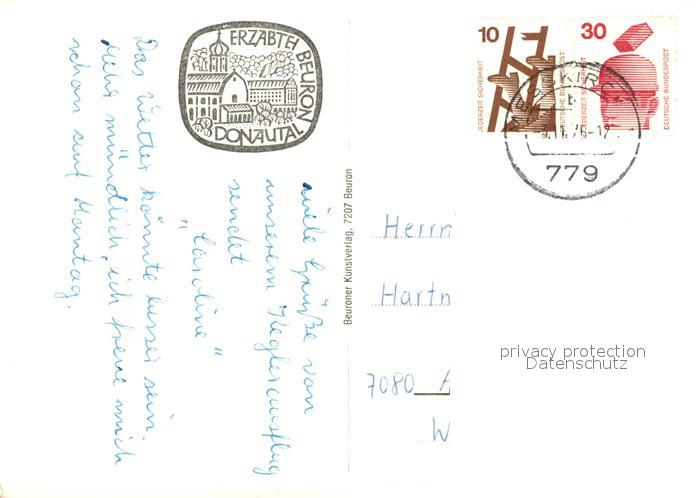 ERZABTEI BEURON
DONAUTAL
viele Grüße von
unserem Keglerausflug
sendet
"Caroline"
Das Wetter könnte besser sein.
Mehr mündlich, ich freue mich
schon auf Montag.
Beuroner Kunstverlag, 7207 Beuron
10
JEDERZEIT SICHERHEIT
DEUTSCHE BUNDESPOST
30
JEDERZEIT SICHERHEIT
DEUTSCHE BUNDESPOST
779
Herrn
Hartm
7080 A
W
privacy protection
Datenschutz